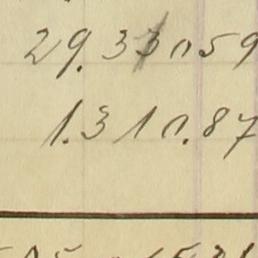 29.330.59
1.310.87